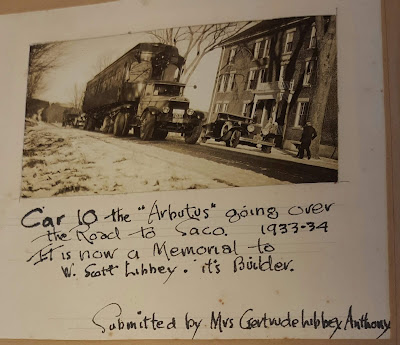 Car 10 the "Arbutus" going over
the Road to Saco. 1933-34
It is now a Memorial to
W. Scott Libbey. it's Builder.
Submitted by Mrs Gertrude Libbey Anthony